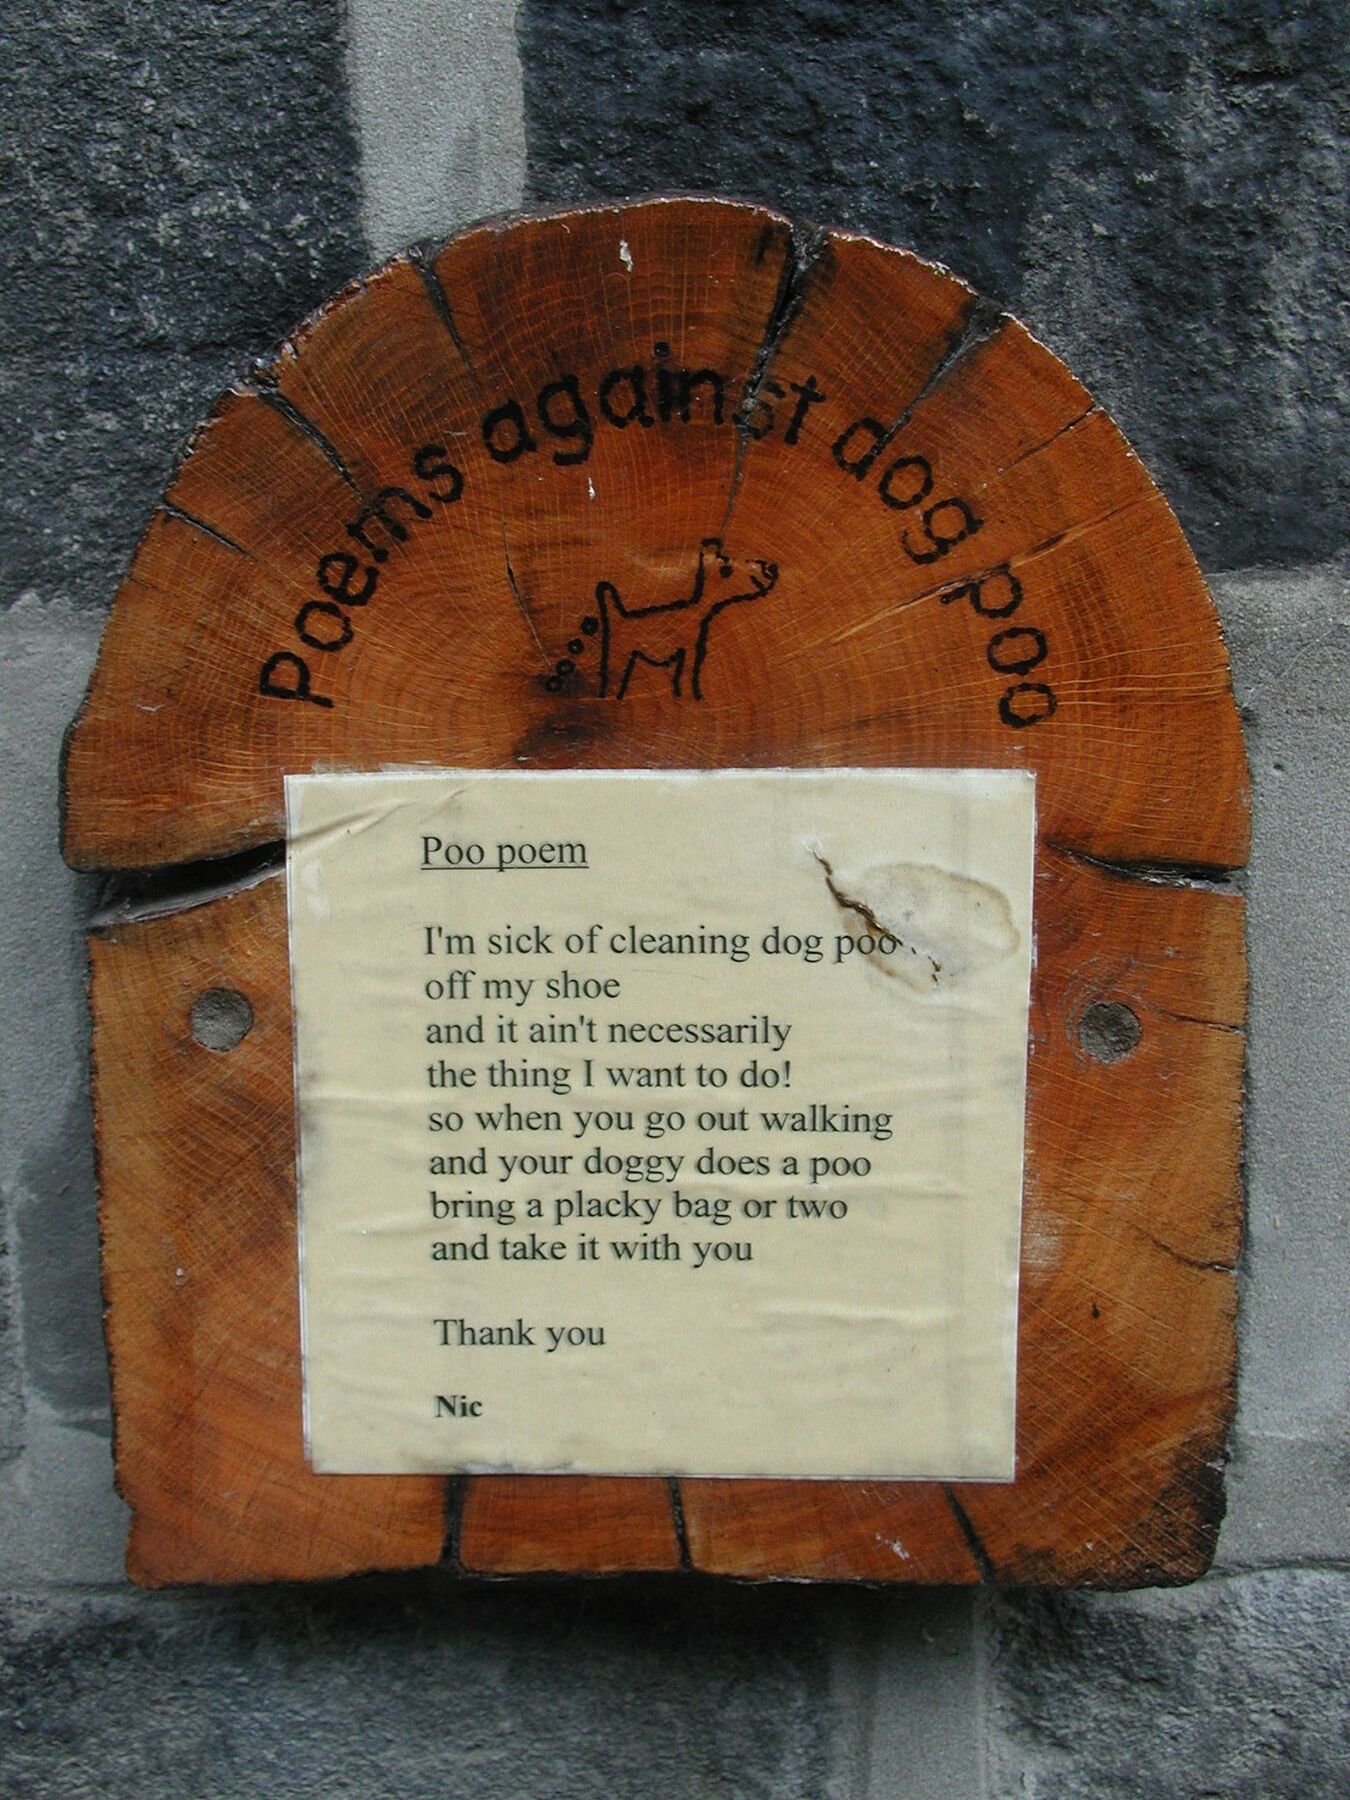 Poems against dog poo
Poo poem
I'm sick of cleaning dog poo
off my shoe
and it ain't necessarily
the thing I want to do!
so when you go out walking
and your doggy does a poo
bring a placky bag or two
and take it with you
Thank you
Nic